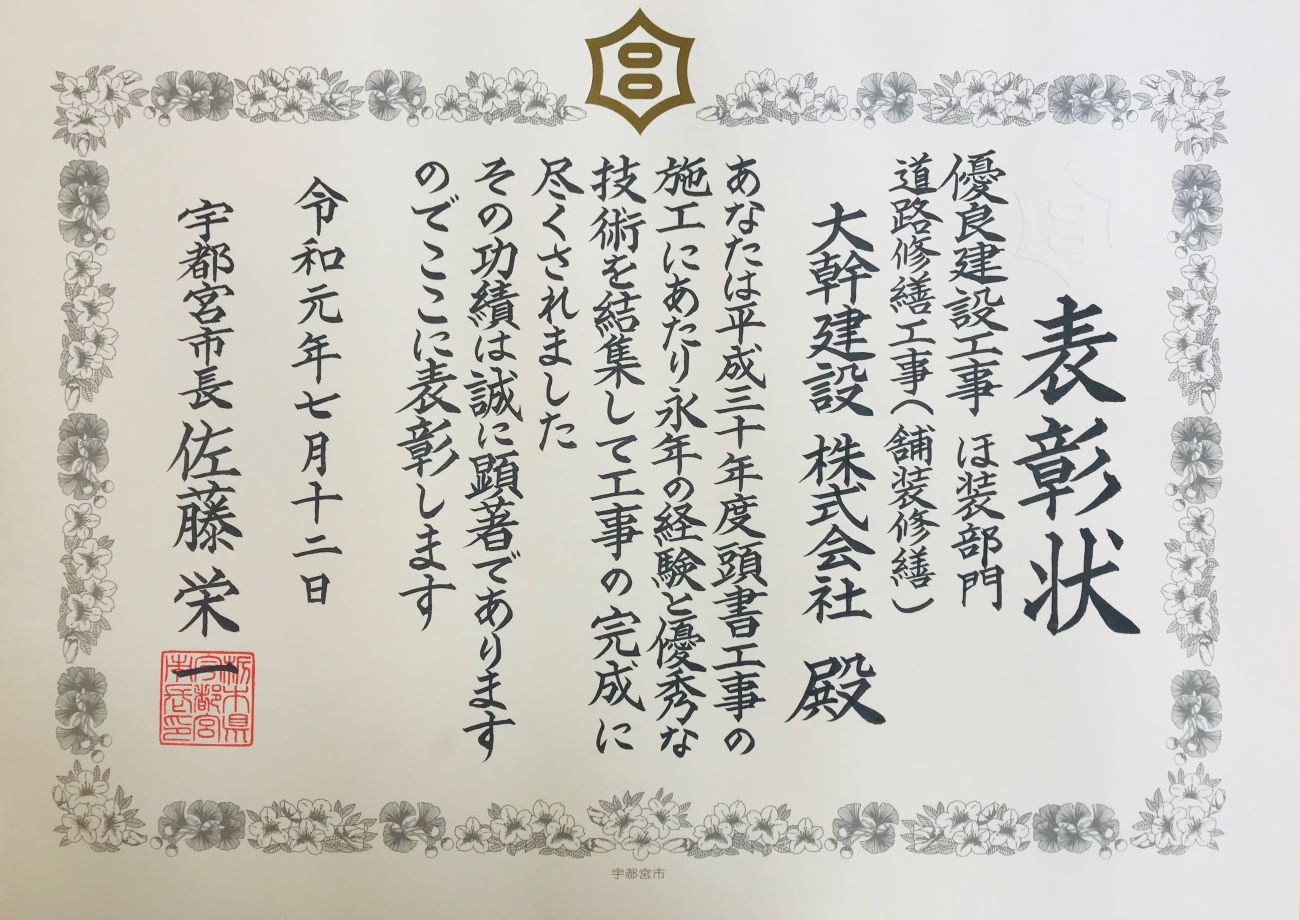 表彰状
優良建設工事 ほ装部門
道路修繕工事(舗装修繕)
大幹建設 株式会社 殿
あなたは平成三十年度頭書工事の
施工にあたり永年の経験と優秀な
技術を結集して工事の完成に
尽くされました
その功績は誠に顕著であります
のでここに表彰します
令和元年七月十二日
宇都宮市長 佐藤 栄一
栃木県
宇都宮
市長印
宇都宮市